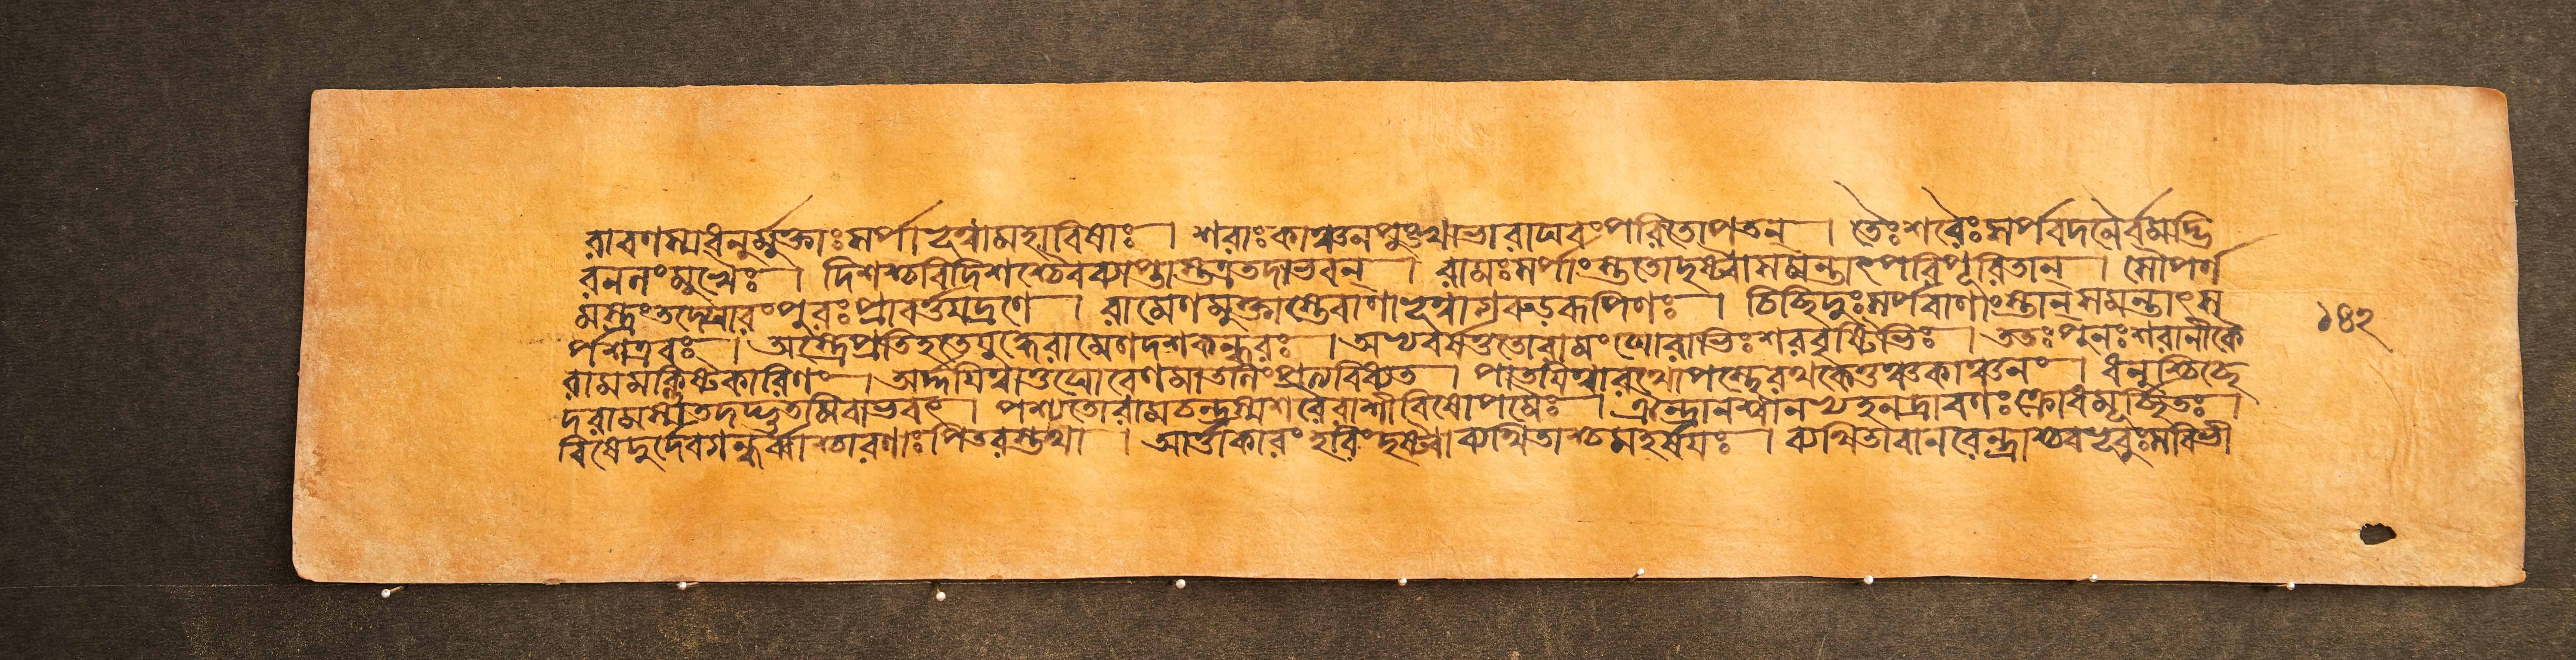 রাবণস্য ধনুর্মুক্তাঃ সর্পা ভূত্বা মহাবিষাঃ । শরাঃ কাঞ্চনপুঙ্খাভা রাঘবং পরিতোপতন্ । তৈঃ শরৈঃ সর্পবদনৈর্বমদ্ভি
রননং মুখৈঃ । দিশশ্চ বিদিশশ্চৈব ব্যাপ্তাস্তত্র তদাভবন্ । রামঃ সর্পাংস্ততো দৃষ্ট্বা সমন্তাৎ পরিপূরিতান্ । সৌপর্ণ
মস্ত্রং তদ্ঘোরং পুরঃ প্রাবর্ত্তয়দ্রণে । রামেণ মুক্তাস্তে বাণা ভূত্বা গরুড়রূপিণঃ । চিচ্ছিদুঃ সর্পবাণাংস্তান্ সমন্তাৎ স
র্পশত্রবঃ । অস্ত্রে প্রতিহতে যুদ্ধে রামেণ দশকন্ধরঃ । অভ্যবর্ষত্ততো রামং ঘোরাভিঃ শরবৃষ্টিভিঃ । ততঃ পুনঃ শরানীকৈ
রামমক্লিষ্টকারিণং । অর্দ্দয়িত্বা তু ঘোরেণ মাতলিং প্রত্যবিধ্যত । পাতয়িত্বা রথোপস্থে রথকেতুঞ্চ কাঞ্চনং । ধনুশ্চিচ্ছে
দ রামস্য তদদ্ভুতমিবাভবৎ । পশ্যতো রামচন্দ্রস্য শরৈরাশীবিষোপমৈঃ । ঐন্দ্রানশ্বানভ্যহনদ্রাবণঃ ক্রোধমূর্চ্ছিতঃ ।
বিষেদুর্দেবগন্ধর্ব্বাশ্চারণাঃ পিতরস্তথা । আর্ত্তাকারং হরিং দৃষ্ট্বা ব্যথিতাশ্চ মহর্ষয়ঃ । ব্যথিতা বানরেন্দ্রাশ্চ বভূবুঃ সবিভী
১৪২